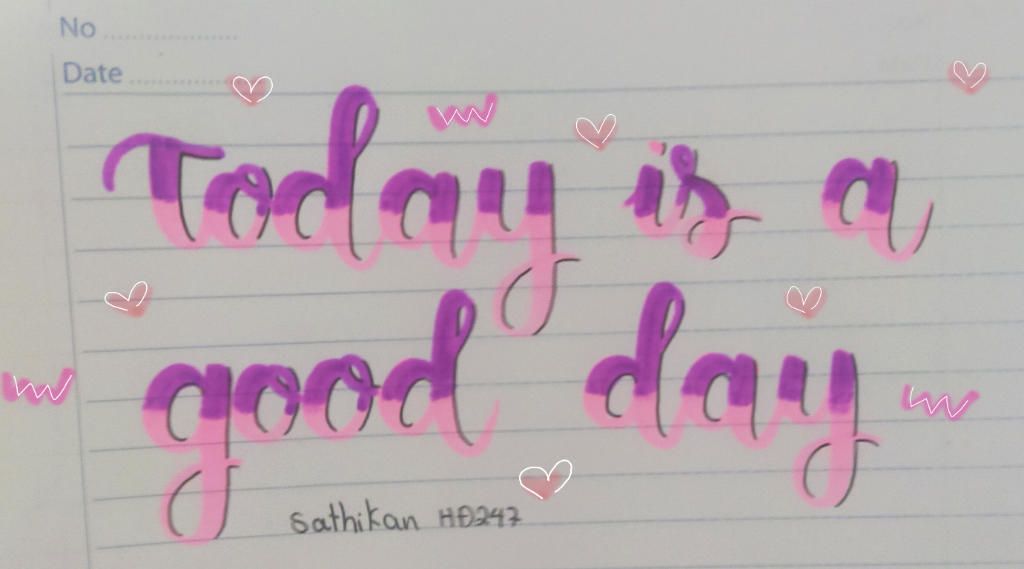 No ....................
Date ....................
Today is a
good day
Sathikan HD247